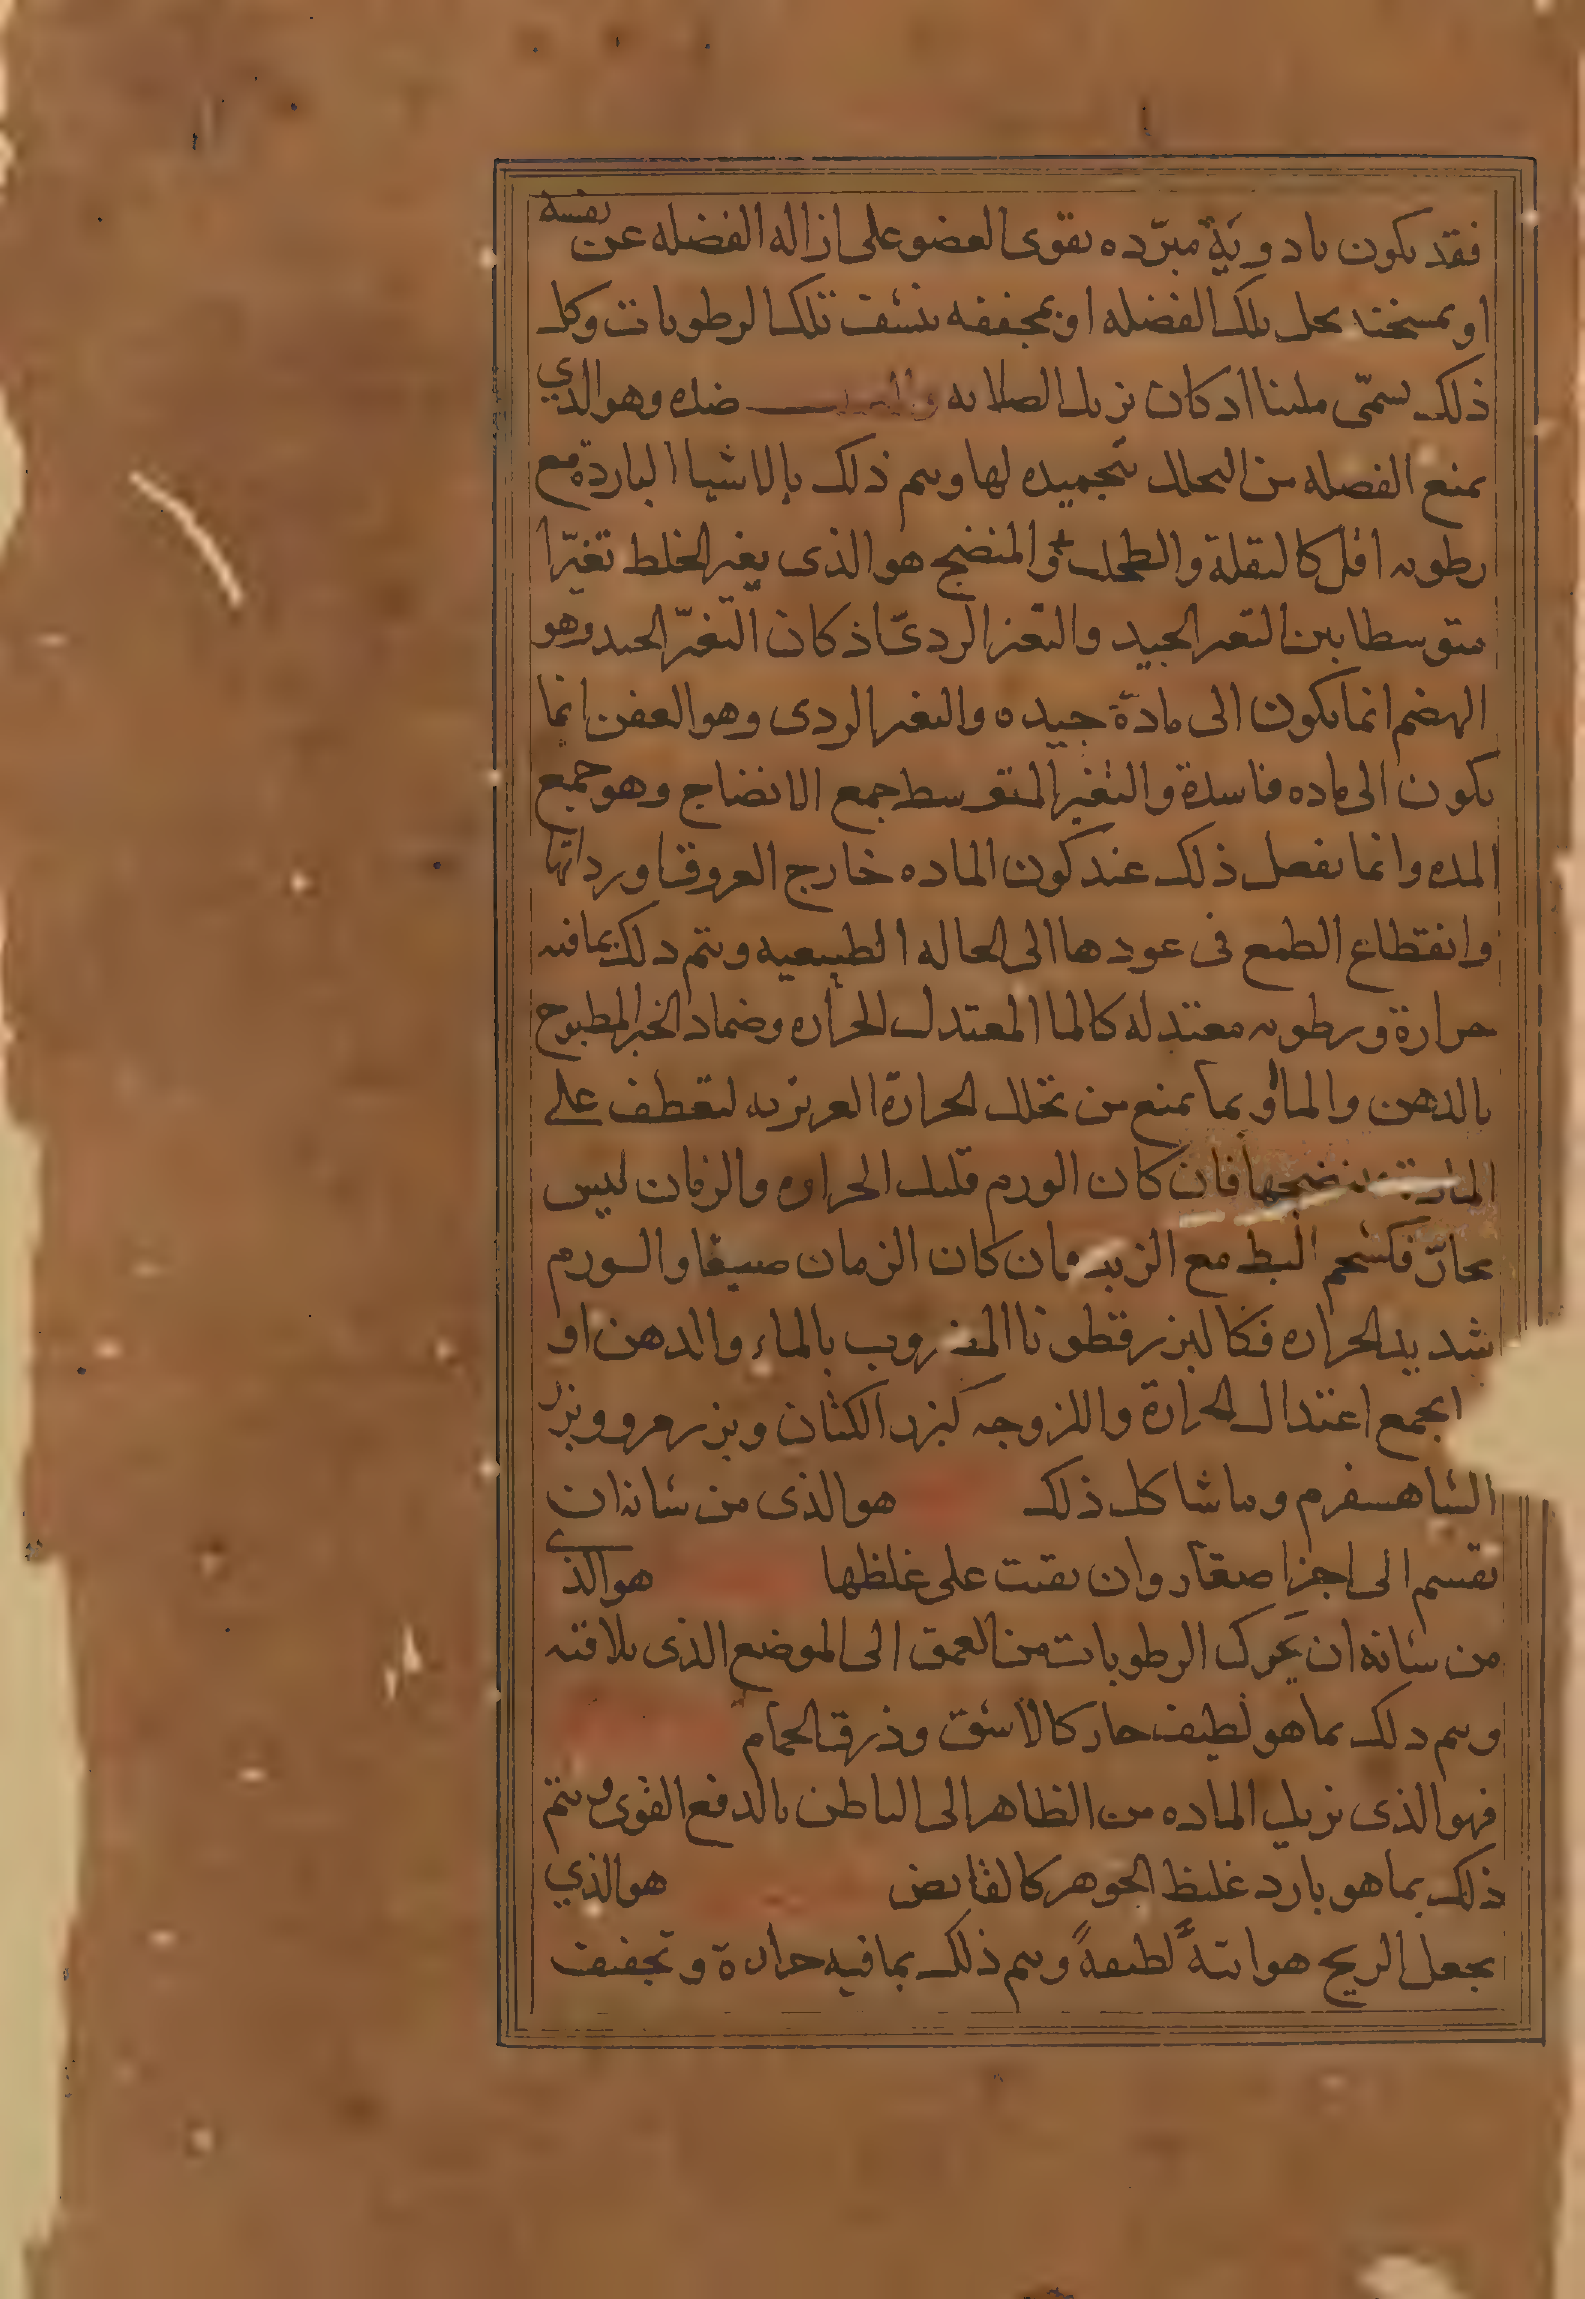 فقد يكون بادوية مبرّده يقوى العضو على ازاله الفضله عن نفسه
او بمسخنه يحل تلك الفضله او بمجففه ينشف تلك الرطوبات وكل
ذلك يسمّى ملينا اذ كان يزيل الصلابه ضده وهو الذي
يمنع الفضله من التحلل بتجميده لها ويتم ذلك بالاشيا الباردة مع
رطوبه اقل كالبقلة والطحلب والمنضج هو الذى يغير الخلط تغيّرا
متوسطا بين التغير الجيد والتغير الردىّ اذ كان التغيّر الجيد وهو
الهضم انما يكون الى مادّة جيده والتغير الردى وهو العفن انما
يكون الى ماده فاسدة والتغير المتوسط جمع الانضاج وهو جميع
المده وانما يفعل ذلك عند كون الماده خارج العروق او رداتها
وانقطاع الطمع فى عودها الى الحاله الطبيعيه ويتم ذلك بما فيه
حرارة ورطوبه معتدله كالما المعتدل الحراره وضماد الخبز المطبوخ
بالدهن والما او بما يمنع من تحلل الحرارة الغريزيه لتعطف على
المادة بنضجها فان كان الورم قليل الحراره والزمان ليس
بحارّ فكشحم البط مع الزبد وان كان الزمان صيفا والورم
شديد الحراره فكالبزرقطونا المضروب بالماء والدهن او
ايجمع اعتدال الحرارة واللزوجه كبزر الكتان وبزر مرو وبزر
الشاهسفرم وما شاكل ذلك هو الذى من شانه ان
يقسم الى اجزا صغار وان بقيت على غلظها هو الذي
من شانه ان يحرك الرطوبات من العمق الى الموضع الذى يلاقيه
ويتم ذلك بما هو لطيف حار كالاشق وذرق الحمام
فهو الذى يزيل الماده من الظاهر الى الباطن بالدفع القوى ويتم
ذلك بما هو بارد غليظ الجوهر كالقابض هو الذي
يجعل الريح هوائيةً لطيفةً ويتم ذلك بما فيه حرارة وتجفيف